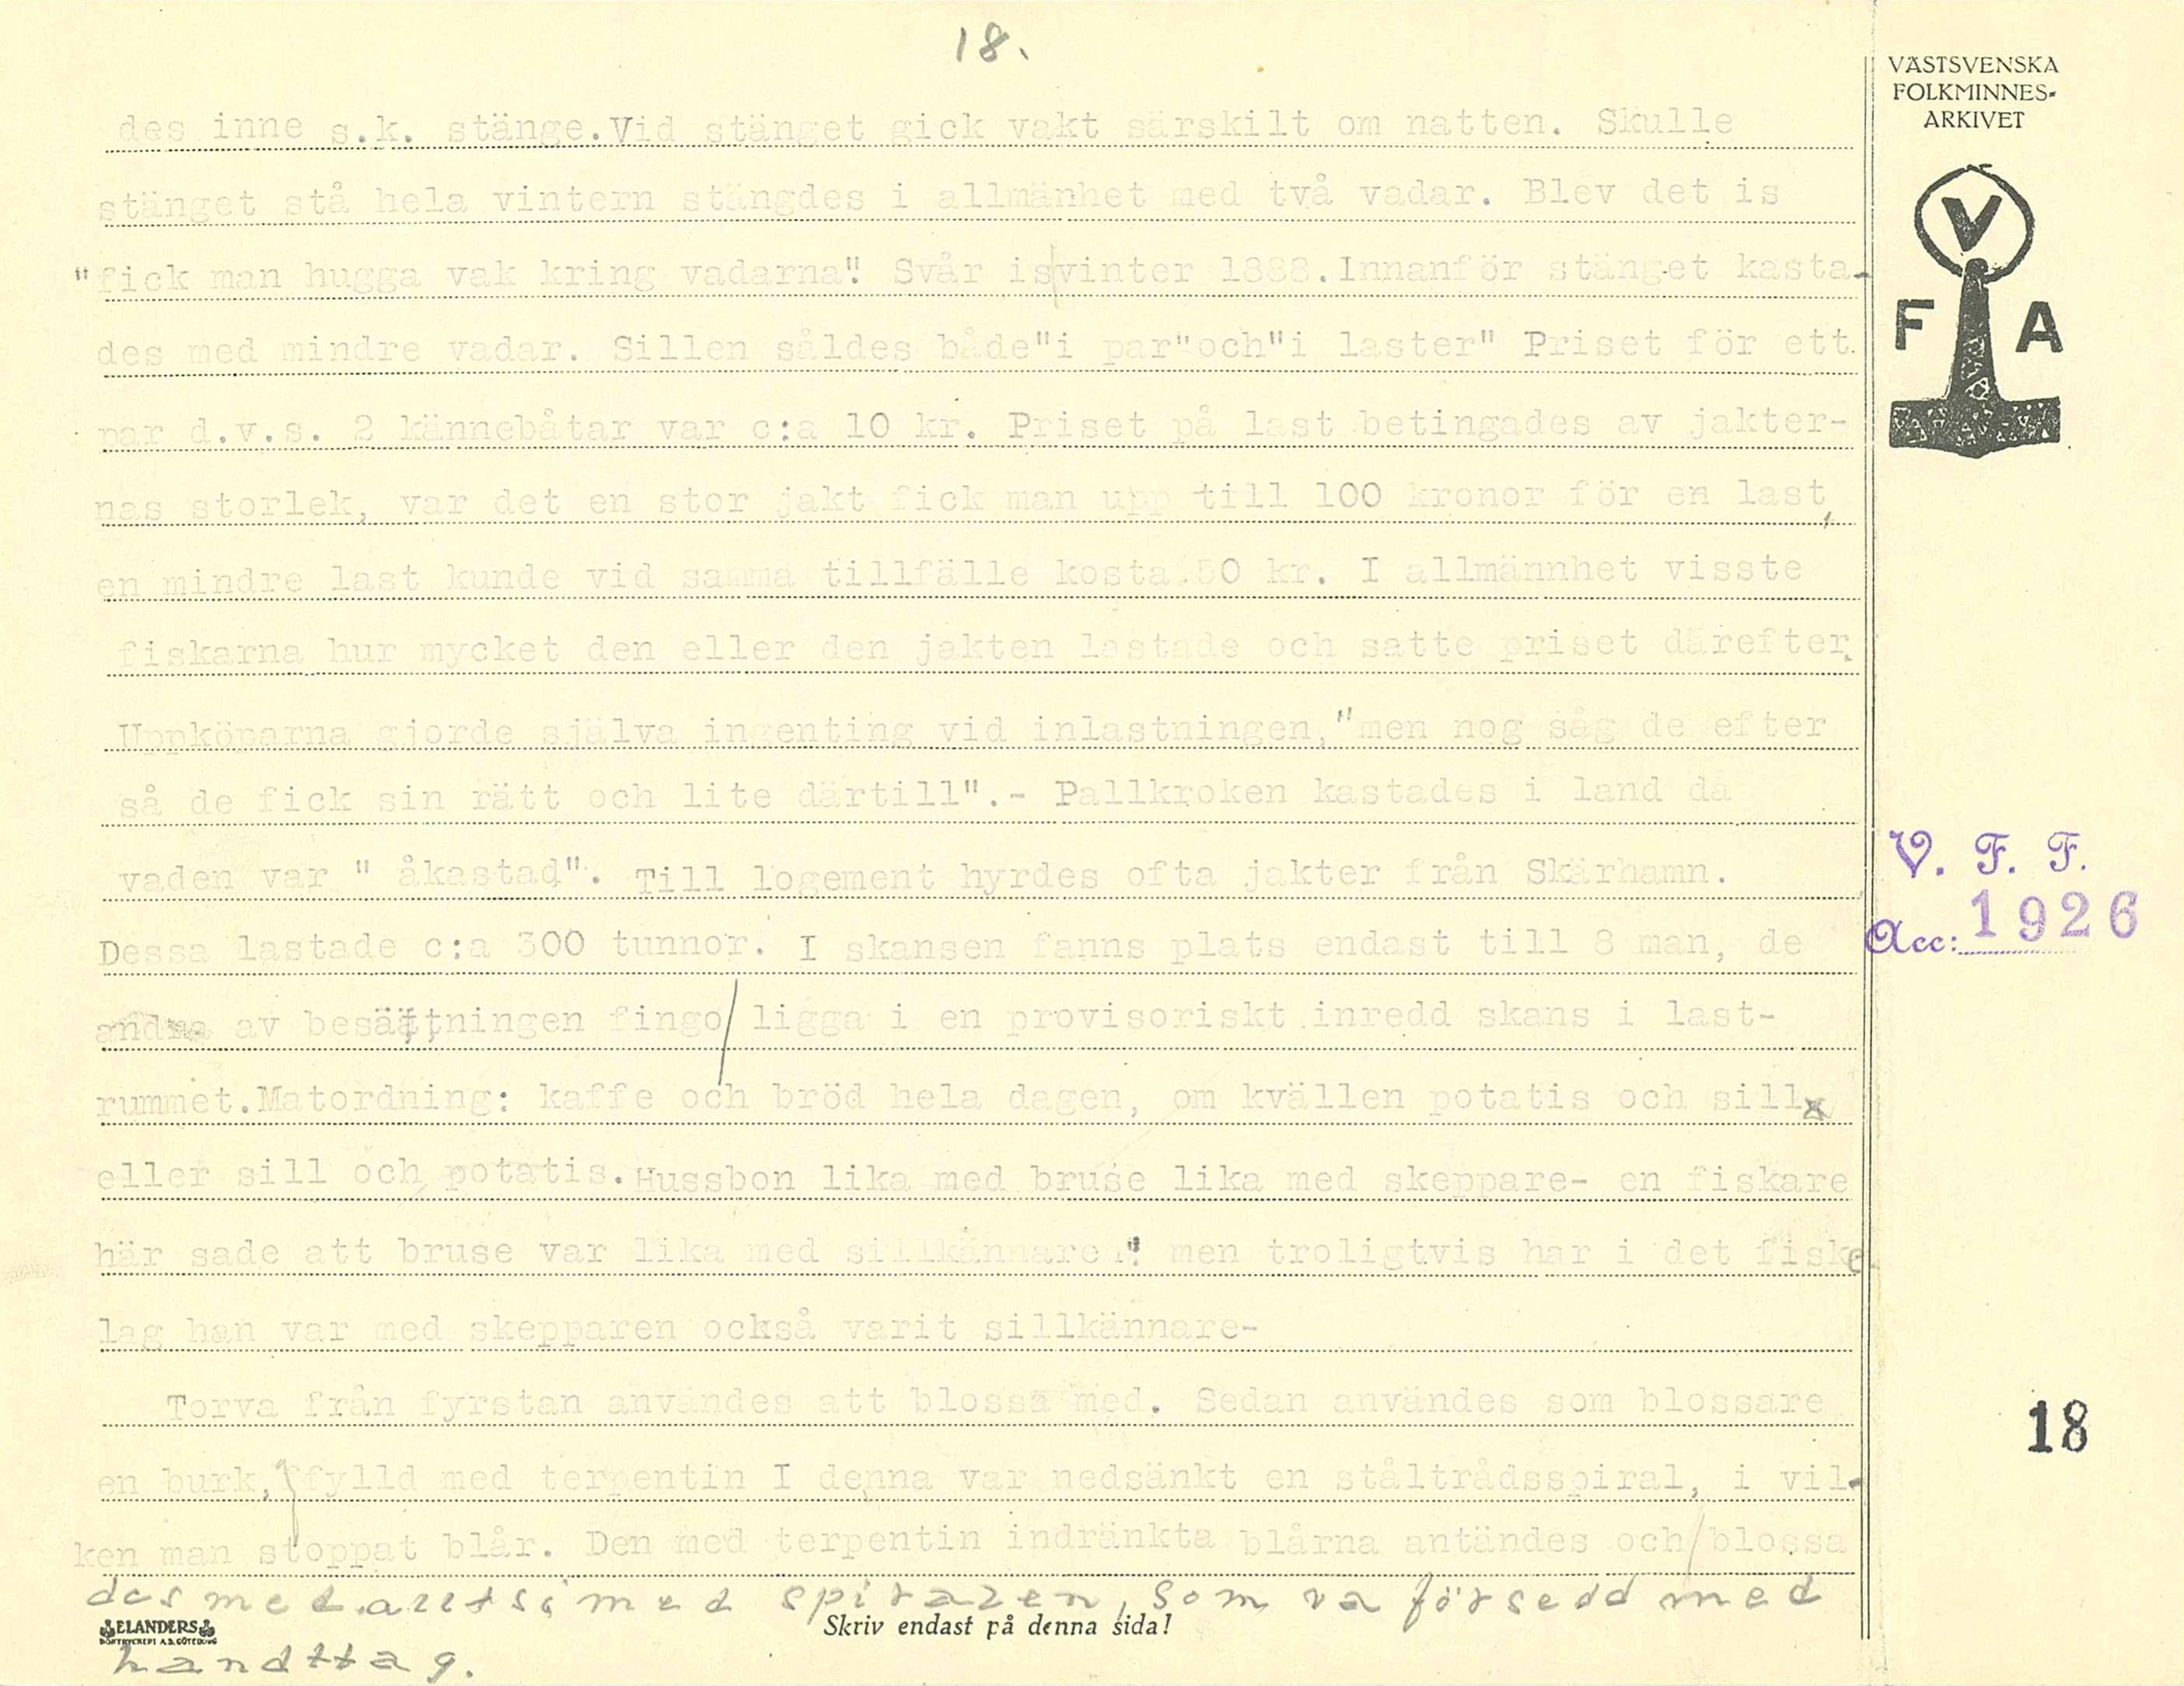 18.
VÄSTSVENSKA
FOLKMINNES-
ARKIVET
V
F A
des inne s.k. stänge.Vid stänget gick vakt särskilt om natten. Skulle
stänget stå hela vintern stängdes i allmänhet med två vadar. Blev det is
"fick man hugga vak kring vadarna". Svår isvinter 1888.Innanför stänget kasta-
des med mindre vadar. Sillen såldes både"i par"och"i laster" Priset för ett
par d.v.s. 2 kännebåtar var c:a 10 kr. Priset på last betingades av jakter-
nas storlek, var det en stor jakt fick man upp till 100 kronor för en last,
en mindre last kunde vid samma tillfälle kosta 50 kr. I allmännhet visste
fiskarna hur mycket den eller den jakten lastade och satte priset därefter.
Uppköparna gjorde själva ingenting vid inlastningen,"men nog såg de efter
så de fick sin rätt och lite därtill".- Pallkroken kastades i land då
vaden var " åkastad". Till logement hyrdes ofta jakter från Skärhamn.
Dessa lastade c:a 300 tunnor. I skansen fanns plats endast till 8 man, de
andra av besättningen fingo ligga i en provisoriskt inredd skans i last-
rummet.Matordning: kaffe och bröd hela dagen, om kvällen potatis och sill
eller sill och potatis.Hussbon lika med bruse lika med skeppare- en fiskare
här sade att bruse var lika med sillkännaren" men troligtvis har i det fiske
lag han var med skepparen också varit sillkännare-
Torva från fyrstan användes att blossa med. Sedan användes som blossare
en burk, fylld med terpentin I denna var nedsänkt en ståltrådsspiral, i vil-
ken man stoppat blår. Den med terpentin indränkta blårna antändes och blossa
des med alltså med spiralen, som va försedd med
handttag.
ELANDERS
BOKTRYCKERI A.B. GÖTEBORG
Skriv endast på denna sida!
V. F. F.
Acc: 1926
18